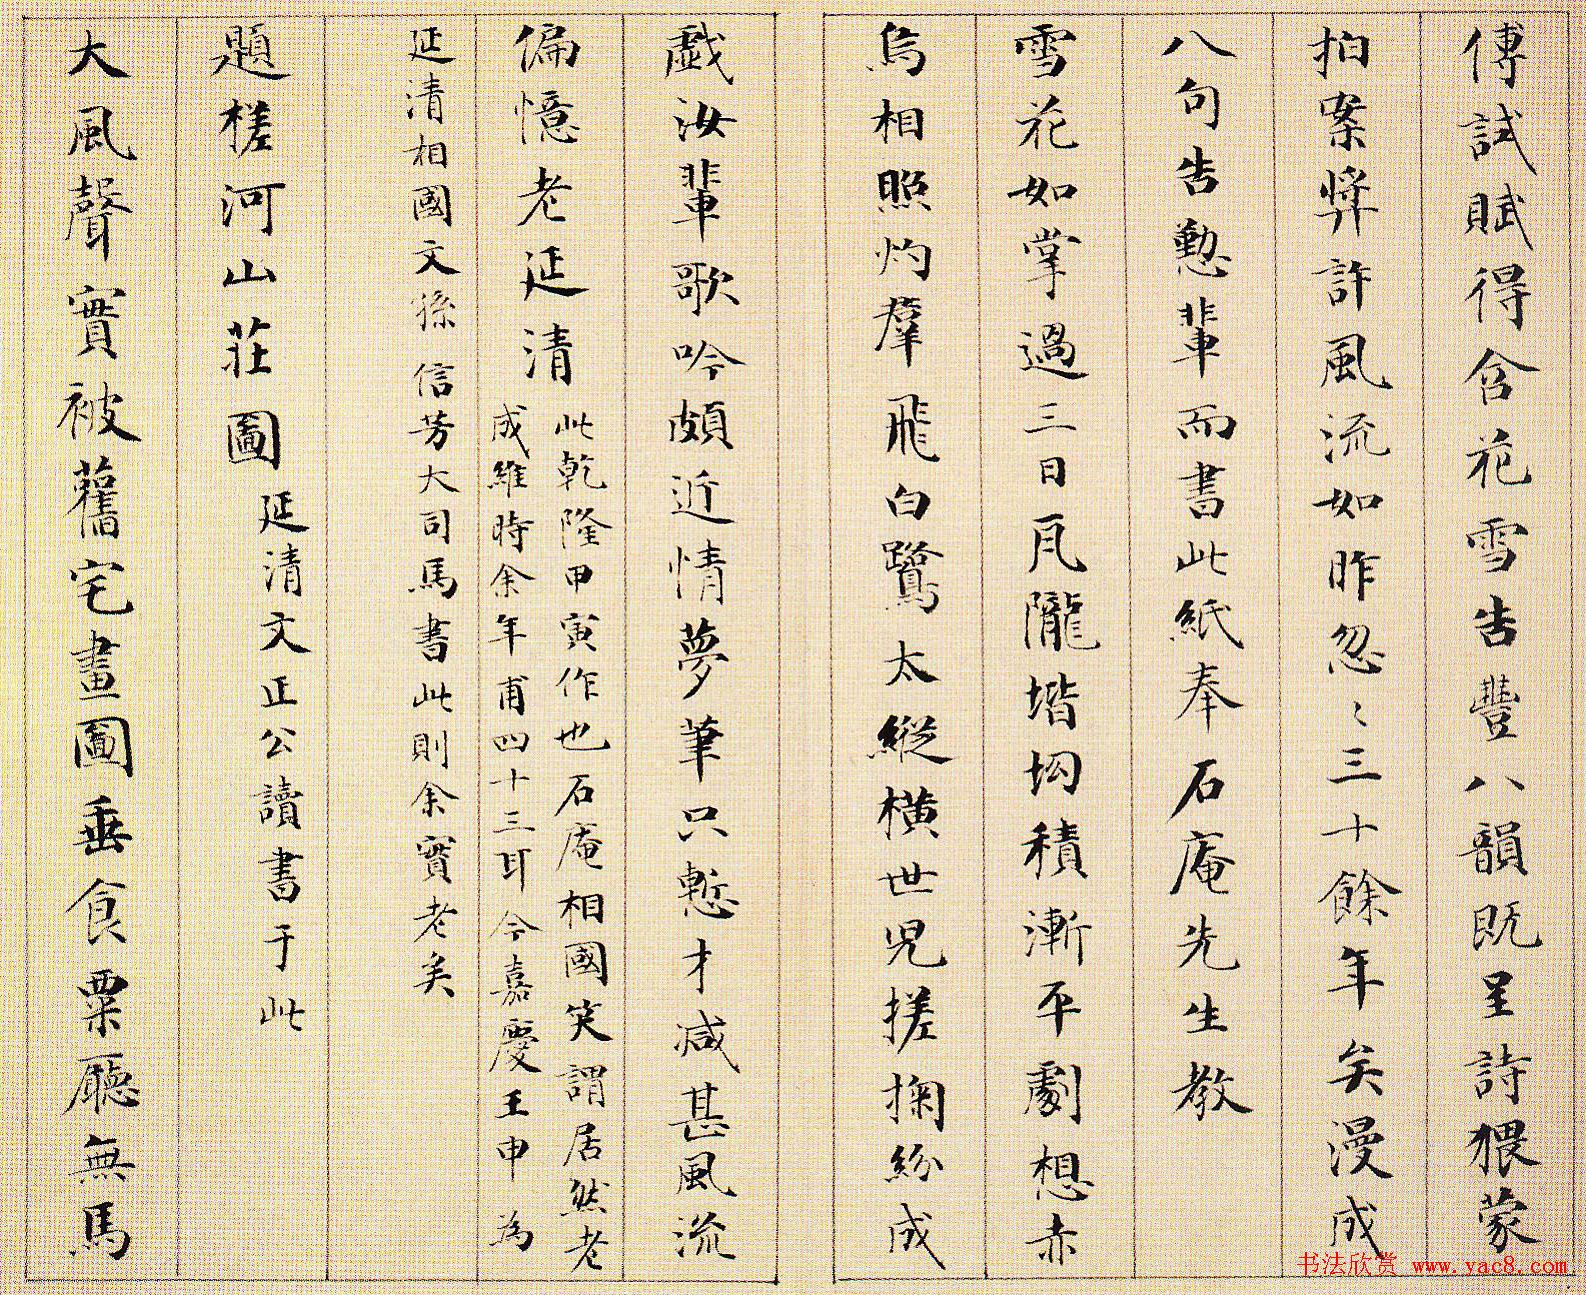 傅試賦得含花雪告豐八韻既呈詩猥蒙
拍案弉許風流如昨忽〻三十餘年矣漫成
八句告懃輩而書此紙奉石庵先生教
雪花如掌過三日瓦隴堦坳積漸平劇想赤
烏相照灼群飛白鷺太縱橫世兒搓掬紛成
戲汝輩歌吟頗近情夢筆只慙才減甚風流
偏憶老延清
此乾隆甲寅作也石庵相國笑謂居然老
成維時余年甫四十三耳今嘉慶壬申為
延清相國文孫信芳大司馬書此則余實老矣
題槎河山莊圖 延清文正公讀書于此
大風聲實被舊宅畫圖垂食粟廳無馬
书法欣赏 www.yac8.com